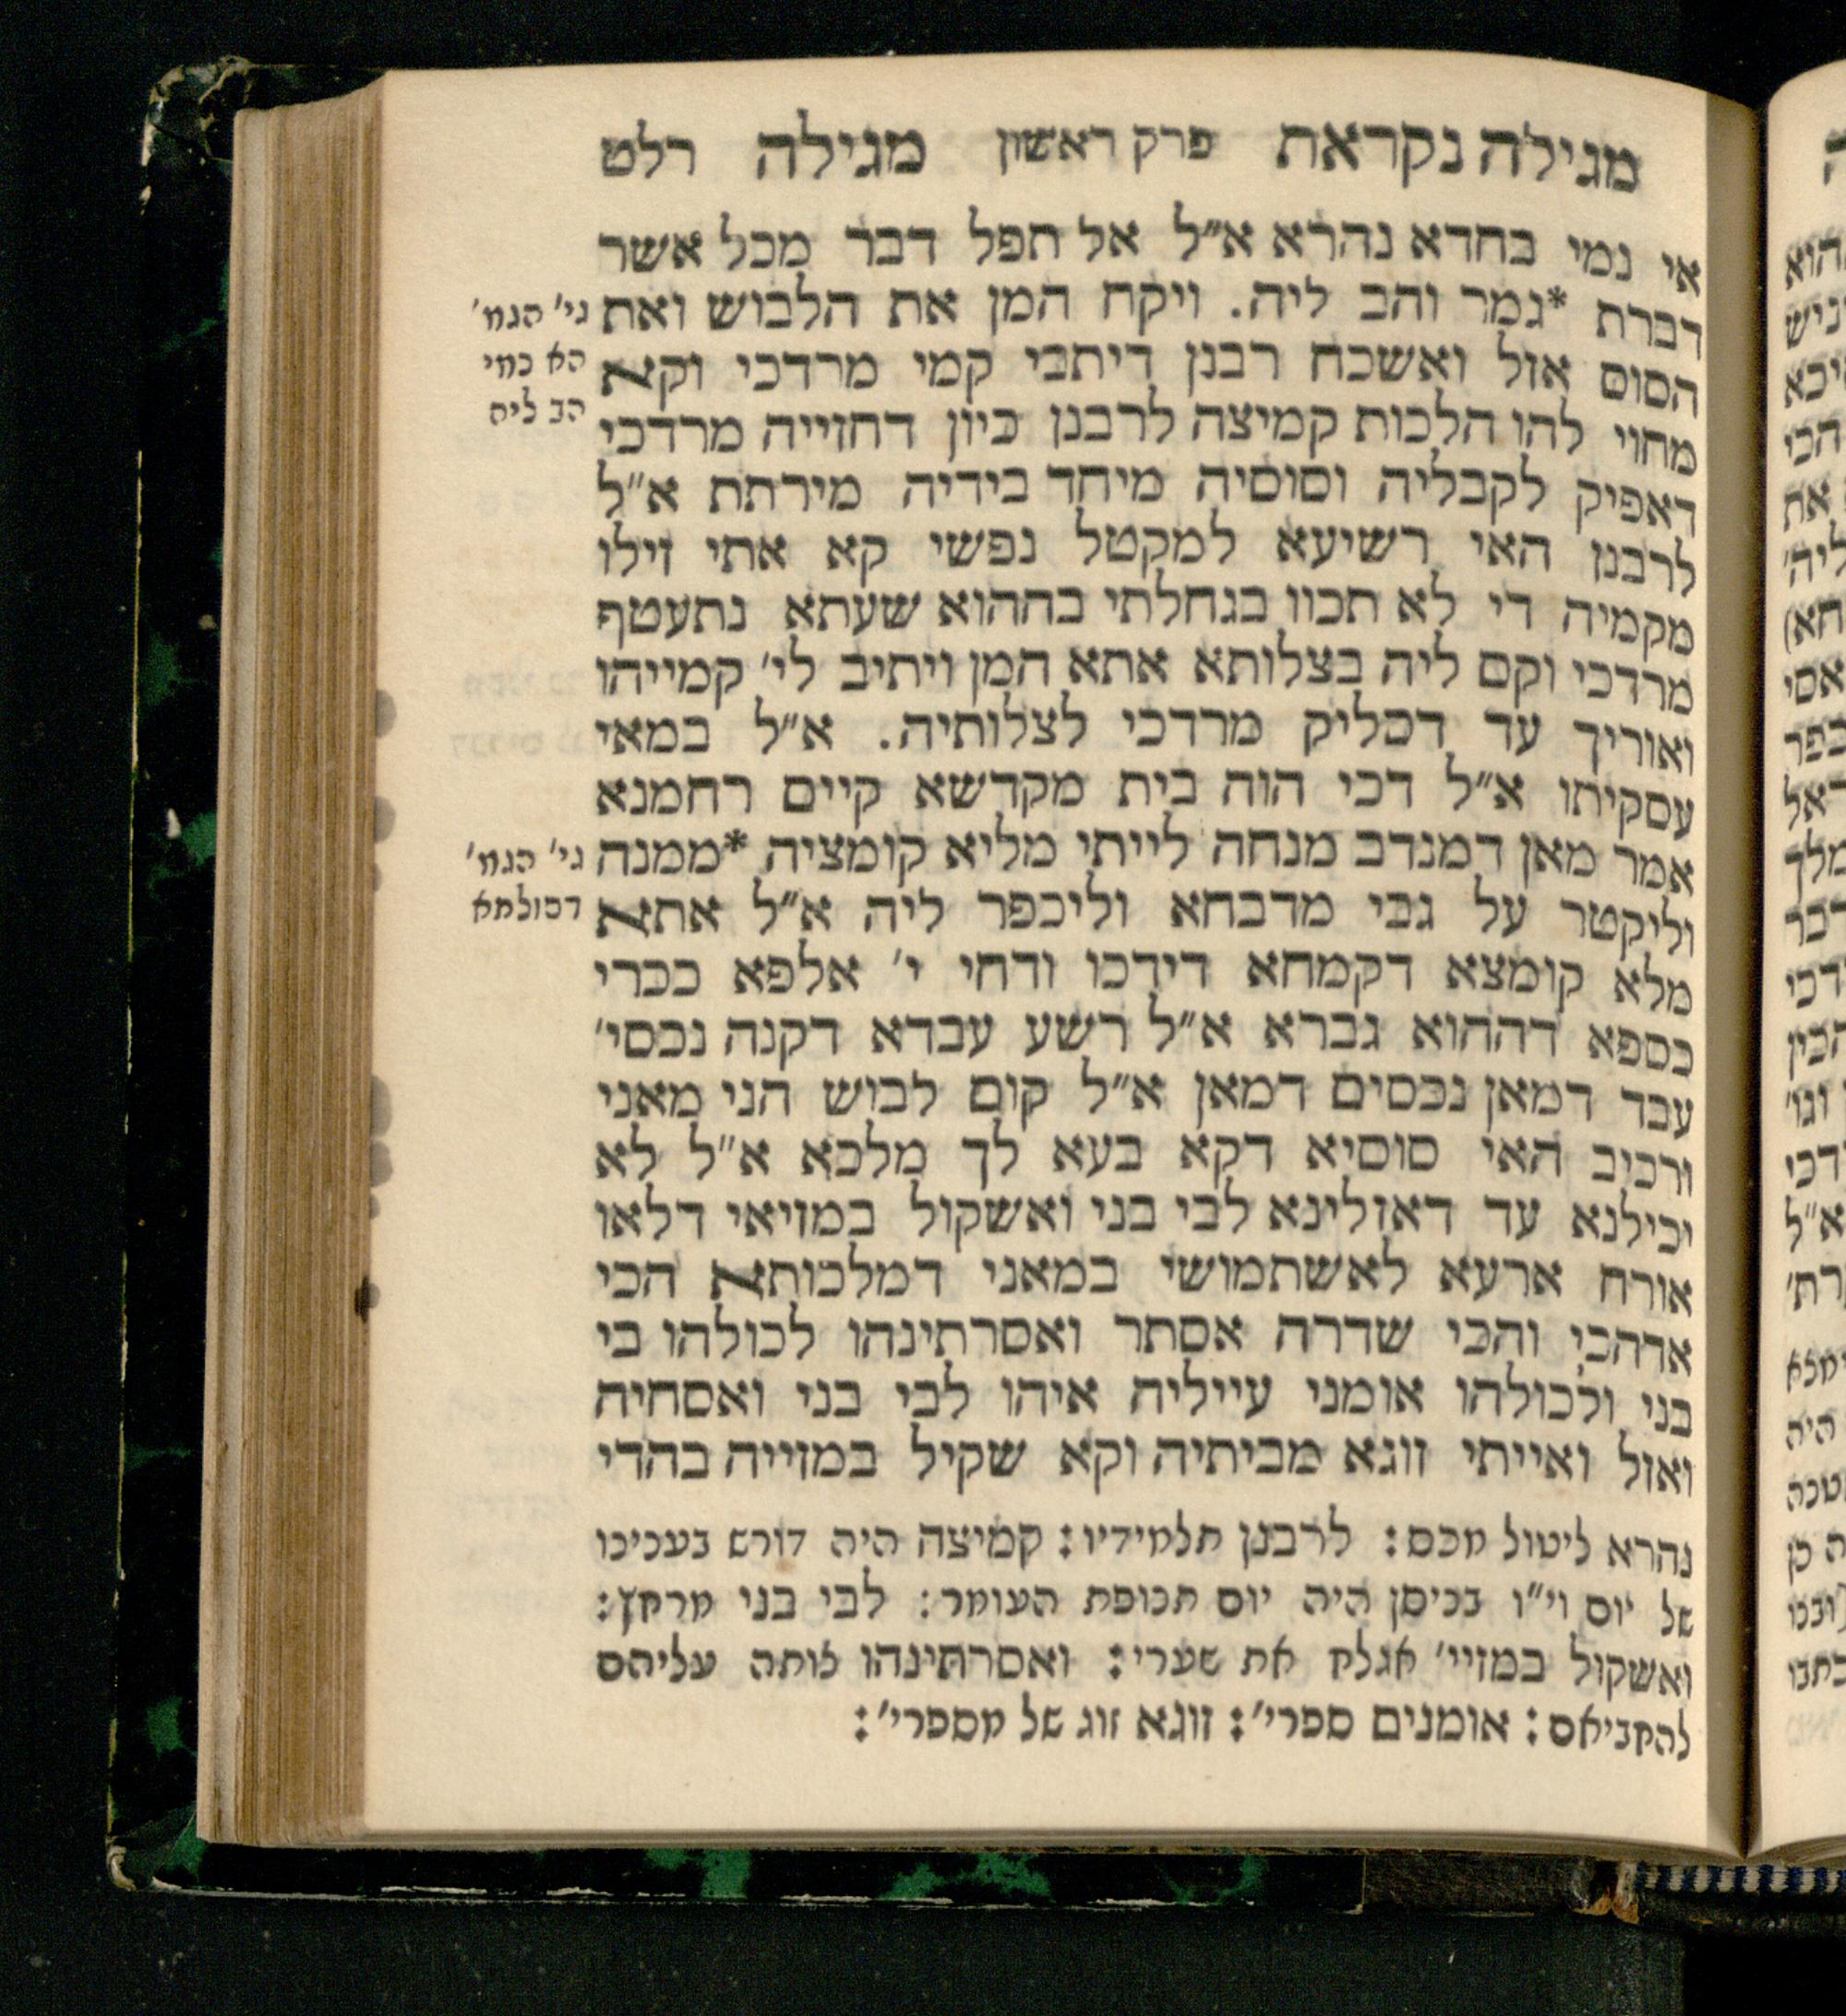 מגילה נקראת פרק ראשון מגילה רלט
אי נמי בחדא נהרא א״ל אל תפל דבר מכל אשר
דברת *גמר והב ליה. ויקח המן את הלבוש ואת
הסוס אזל ואשכח רבנן דיתבי קמי מרדכי וקא
מחוי להו הלכות קמיצה לרבנן כיון דחזייה מרדכי
דאפיק לקבליה וסוסיה מיחד בידיה מירתת א״ל
לרבנן האי רשיעא למקטל נפשי קא אתי זילו
מקמיה די לא תכוו בגחלתי בההוא שעתא נתעטף
מרדכי וקם ליה בצלותא אתא המן ויתיב לי׳ קמייהו
ואוריך עד דסליק מרדכי לצלותיה. א״ל במאי
עסקיתו א״ל דכי הוה בית מקדשא קיים רחמנא
אמר מאן דמנדב מנחה לייתי מליא קומציה *ממנה
וליקטר על גבי מדבחא וליכפר ליה א״ל אתא
מלא קומצא דקמחא דידכו ודחי י׳ אלפא ככרי
כספא דההוא גברא א״ל רשע עבדא דקנה נכסי׳
עבד דמאן נכסים דמאן א״ל קום לבוש הני מאני
ורכיב האי סוסיא דקא בעא לך מלכא א״ל לא
יכילנא עד דאזלינא לבי בני ואשקול במזיאי דלאו
אורח ארעא לאשתמושי במאני דמלכותא הכי
אדהכי והכי שדרה אסתר ואסרתינהו לכולהו בי
בני ולכולהו אומני עייליה איהו לבי בני ואסחיה
ואזל ואייתי זוגא מביתיה וקא שקיל במזייה בהדי
גי׳ הגמ׳
הא כמי
הב ליה
גי׳ הגמ׳
דסולתא
נהרא ליטול מכס: לרבנן תלמידיו: קמיצה היה דורש בעניינו
של יום וי״ו בניסן היה יום תנופת העומר: לבי בני מרחץ:
ואשקול במזיי׳ אגלח את שערי: ואסרתינהו צותה עליהם
להחביאם: אומנים ספרי׳: זוגא זוג של מספרי׳: